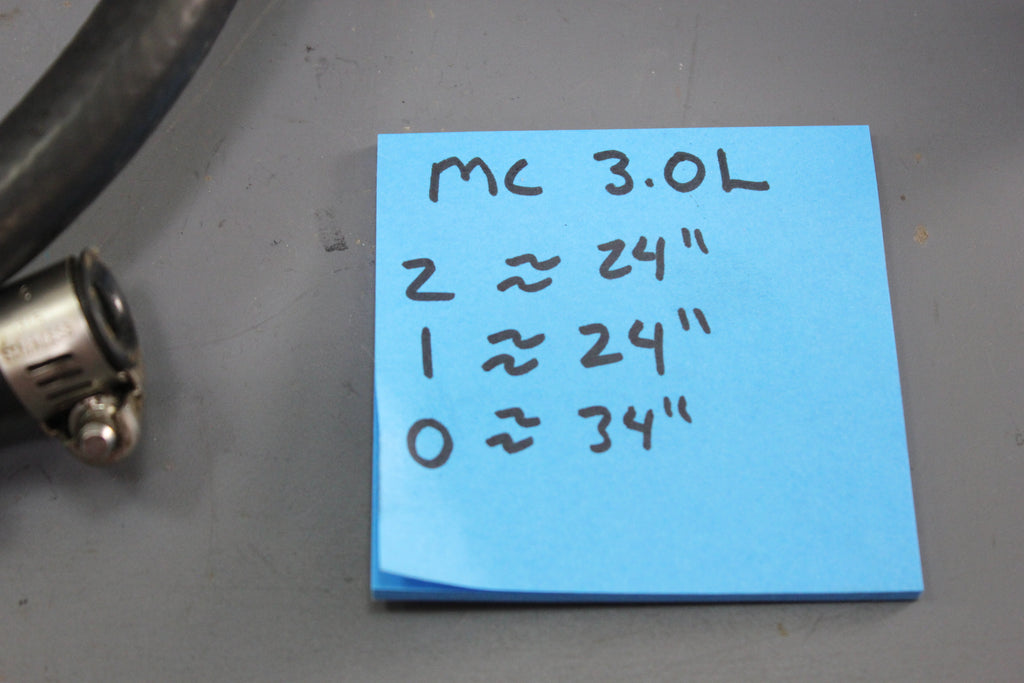 MC 3.0L
2 ≈ 24"
1 ≈ 24"
0 ≈ 34"